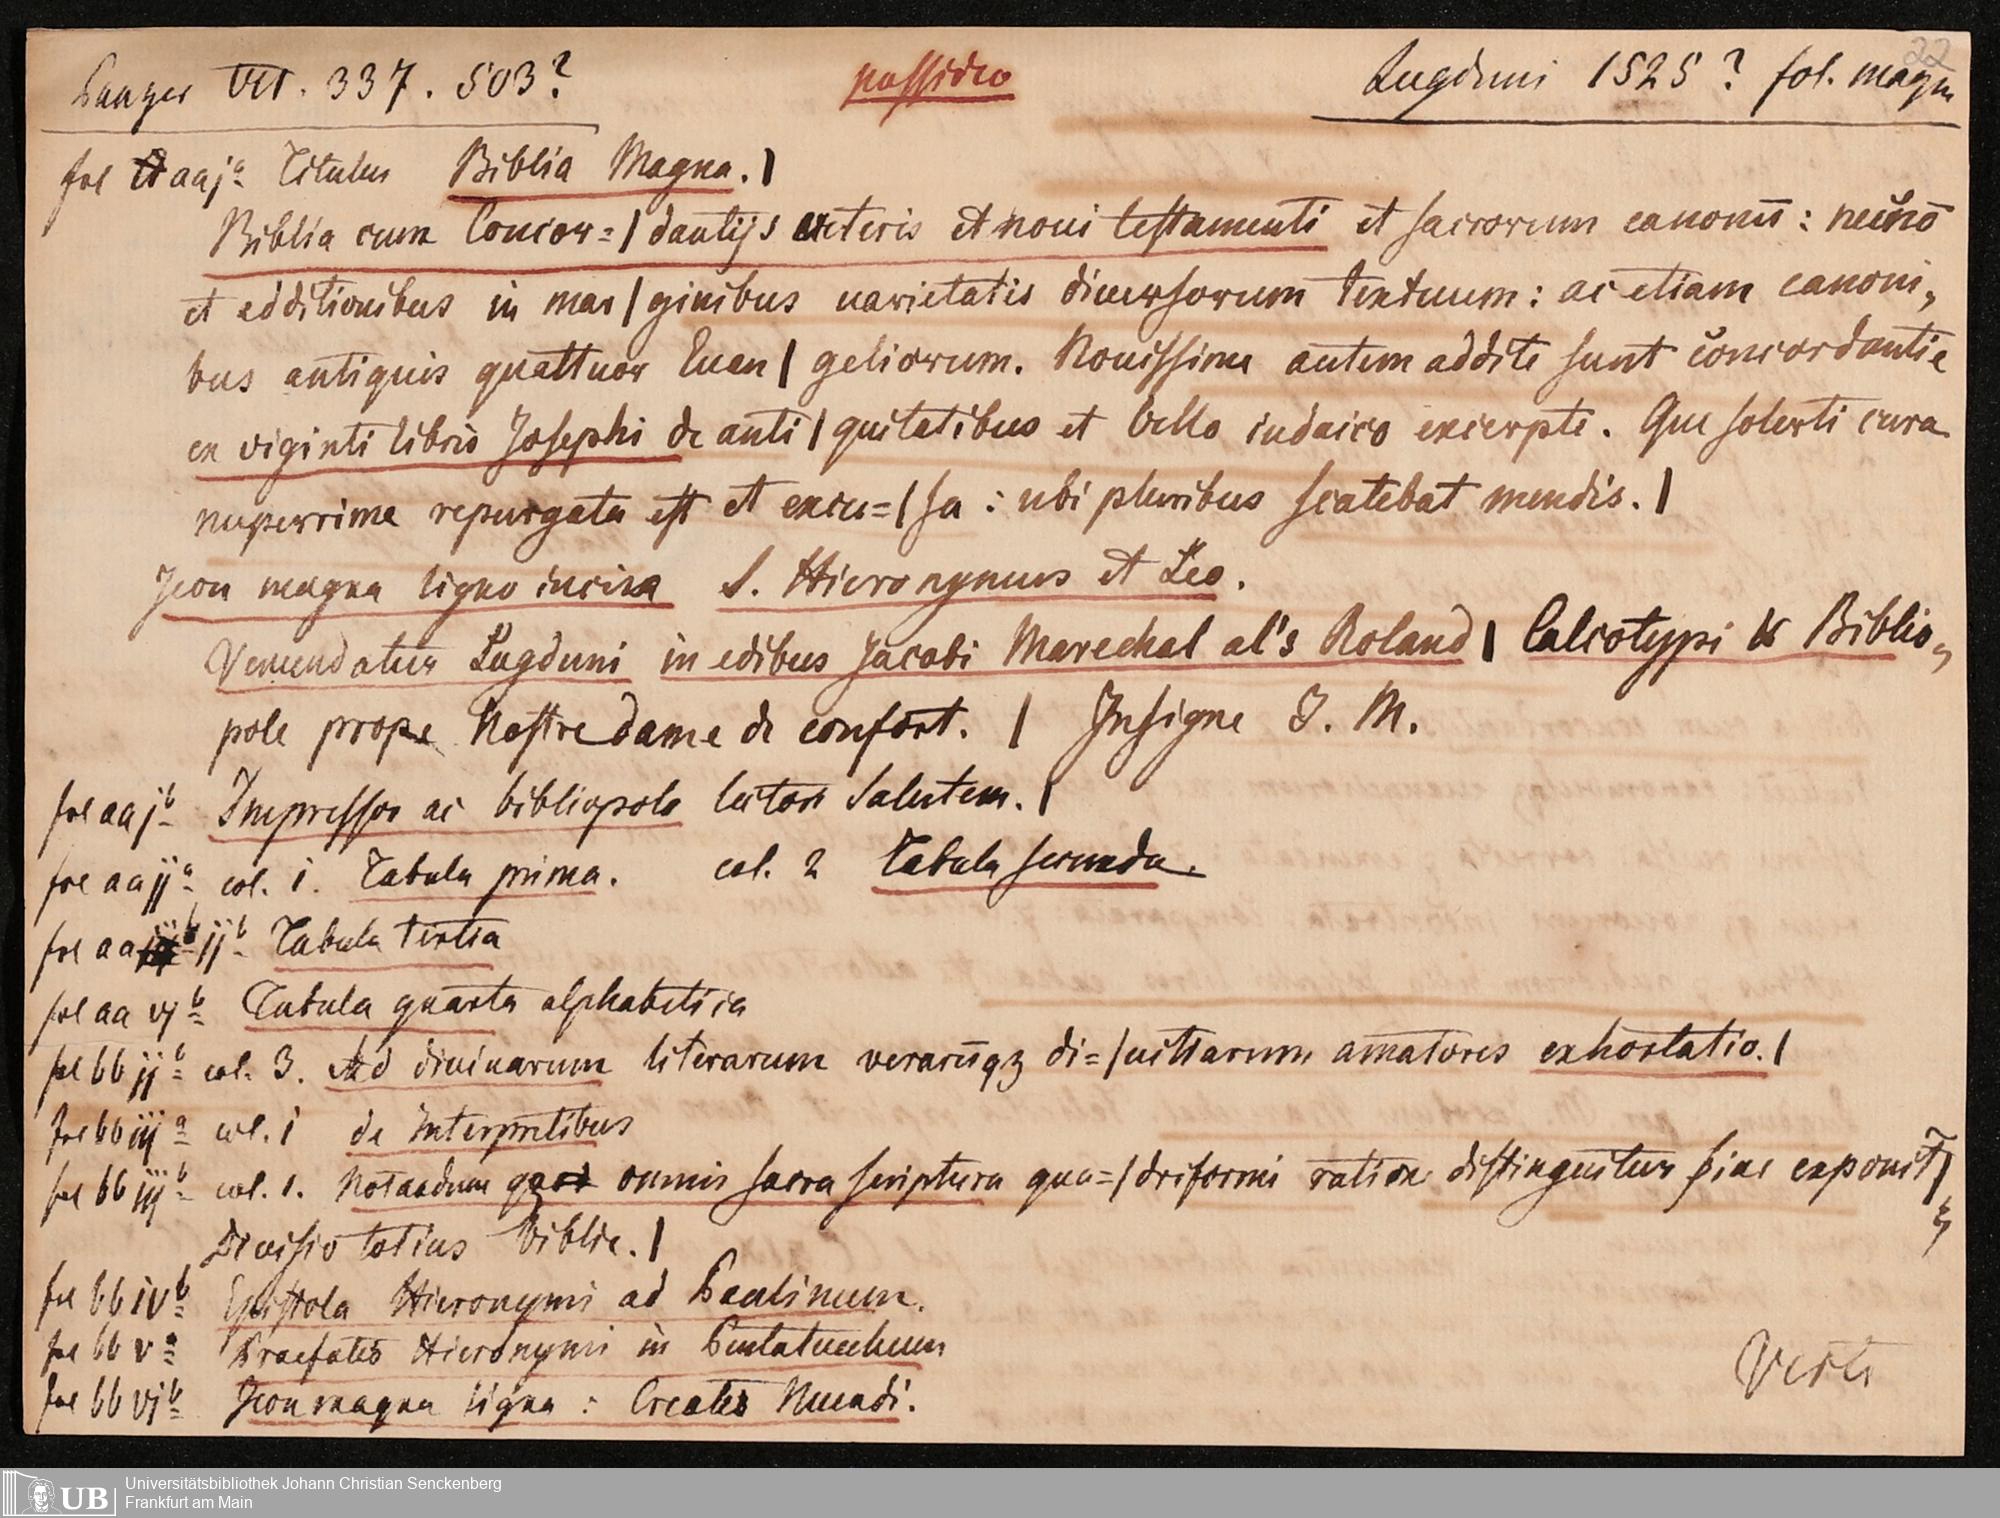 22
Panzer VII. 337. 503? possideo Lugduni 1525? fol. magn
fol aaja Titulus Biblia Magna. |
Biblia cum Concor=| dantijs veteris et noui testamenti et sacrorum canonū: necnō
et additionibus in mar | ginibus varietatis diuersorum textuum: ac etiam canoni„
bus antiquis quattuor Euan | geliorum. Nouissime autem addite sunt concordantie
ex viginti libris Josephi de anti | quitatibus et bello iudaico excerpte. Que solerti cura
nuperrime repurgata est et excu=| sa: ubi pluribus scatebat mendis. |
Icon magna ligno incisa S. Hieronymus et Leo.
Venundatur Lugduni in edibus Jacobi Marechal al's Roland | Calcotypi & Biblio„
pole prope Nostre dame de confort. | Insigne I. M.
fol aajb Impressor ac bibliopola lectori Salutem. |
fol aa ija col. 1. Tabula prima. col. 2 Tabula secunda.
fol aa ijb Tabula tertia
fol aa vjb Tabula quarta alphabetica
fol bb ijb col. 3. Ad diuinarum literarum verarūqz di=| uitiarum amatores exhortatio. |
fol bb iija col. 1 de Interpretibus
fol bb iijb col. 1. Notandum quod omnis sacra scriptura qua=| driformi ratione distinguitur siue exponit̃ |
Diuisio totius Biblie. |
fol bb ivb Epistola Hieronymi ad Paulinum.
fol bb va Praefatio Hieronymi in Pentateuchum
fol bb vjb Icon magna ligna: Creatio Mundi.
Verte
UB Universitätsbibliothek Johann Christian Senckenberg
Frankfurt am Main